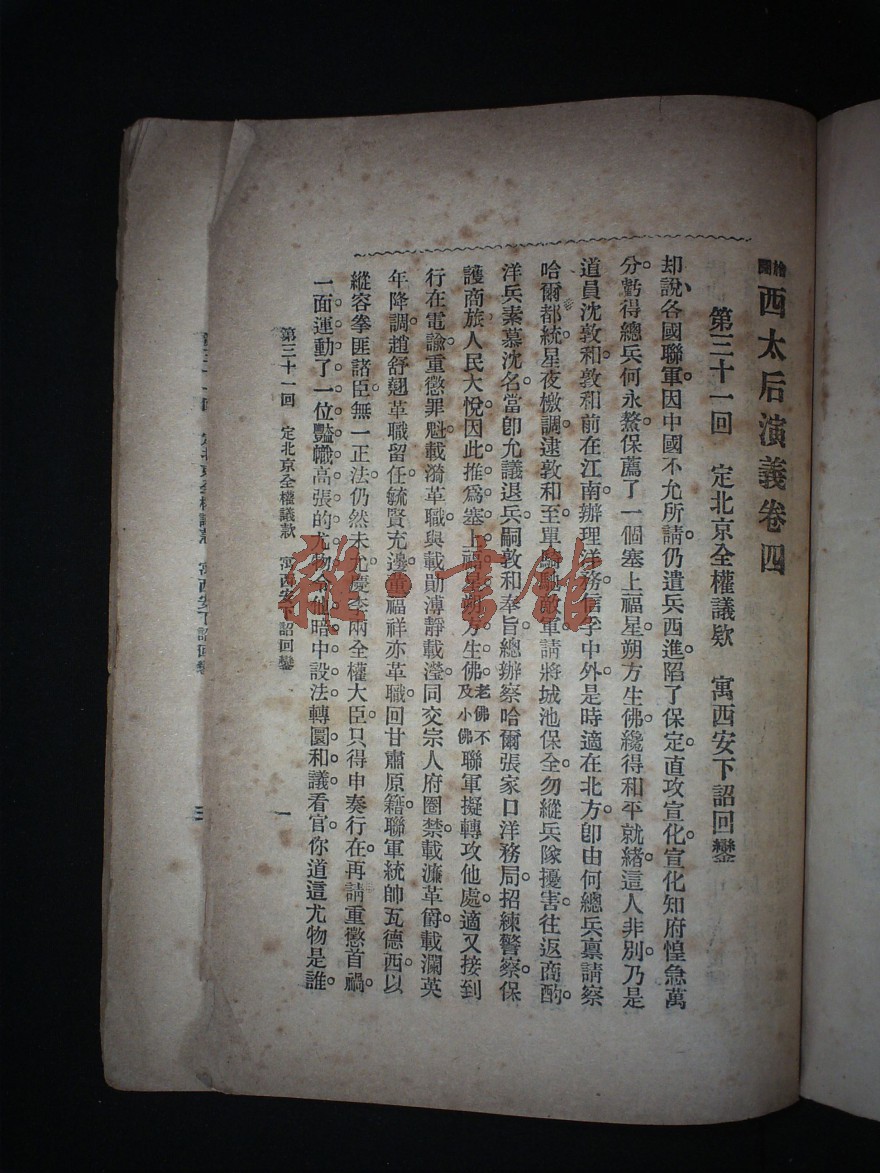 繪圖西太后演義卷四
第三十一回　定北京全權議欵　寓西安下詔回鑾
却說各國聯軍因中國不允所請仍遣兵西進陷了保定直攻宣化宣化知府惶急萬
分虧得總兵何永鰲保薦了一個塞上福星朔方生佛纔得和平就緒這人非別乃是
道員沈敦和敦和前在江南辦理洋務信孚中外是時適在北方卽由何總兵稟請察
哈爾都統星夜檄調逮敦和至單騎馳敵軍請將城池保全勿縱兵隊擾害往返商酌
洋兵素慕沈名當卽允議退兵嗣敦和奉旨總辦察哈爾張家口洋務局招練警察保
護商旅人民大悅因此推爲塞上福星朔方生佛老佛不及小佛聯軍擬轉攻他處適又接到
行在電諭重懲罪魁載漪革職與載勛溥靜載瀅同交宗人府圈禁載濂革爵載瀾英
年降調趙舒翹革職留任毓賢充邊董福祥亦革職回甘肅原籍聯軍統帥瓦德西以
縱容拳匪諸臣無一正法仍然未允慶李兩全權大臣只得申奏行在再請重懲首禍
一面運動了一位豔幟高張的尤物令他暗中設法轉圜和議看官你道這尤物是誰
第三十一回　定北京全權議欵　寓西安下詔回鑾
一
定北京全權議欵　寓西安下詔回鑾
三
雜·書館